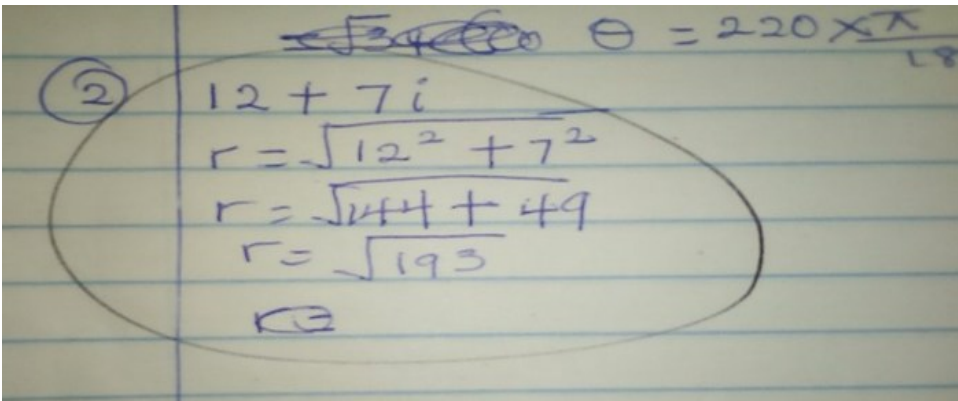 θ = 220 × π/18
② 12 + 7i
r = √12² + 7²
r = √144 + 49
r = √193
r =